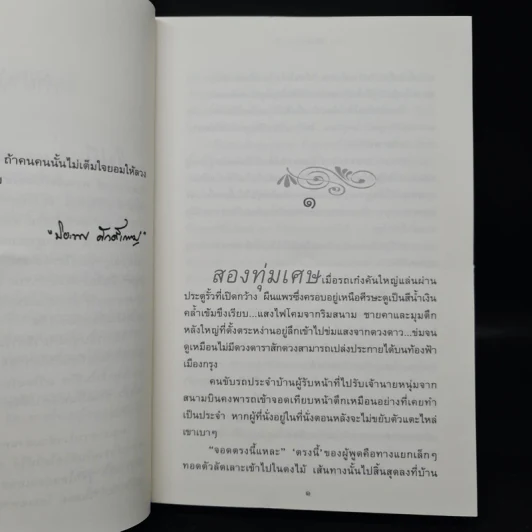 ถ้าคนคนนั้นไม่เต็มใจยอมให้ลวง
๑
สองทุ่มเศษ เมื่อรถเก๋งคันใหญ่แล่นผ่าน
ประตูรั้วที่เปิดกว้าง ผืนแพรซึ่งครอบอยู่เหนือศีรษะดูเป็นสีน้ำเงิน
คล้ำเข้มขึงเรียบ...แสงไฟโคมจากริมสนาม ชายคาและมุมตึก
หลังใหญ่ที่ตั้งตระหง่านอยู่ลึกเข้าไปข่มแสงจากดวงดาว...ข่มจน
ดูเหมือนไม่มีดวงดาราสักดวงสามารถเปล่งประกายได้บนท้องฟ้า
เมืองกรุง
คนขับรถประจำบ้านผู้รับหน้าที่ไปรับเจ้านายหนุ่มจาก
สนามบินคงพารถเข้าจอดเทียบหน้าตึกเหมือนอย่างที่เคยทำ
เป็นประจำ หากผู้ที่นั่งอยู่ในที่นั่งตอนหลังจะไม่ขยับตัวแตะไหล่
เขาเบาๆ
“จอดตรงนี้แหละ” ‘ตรงนี้’ ของผู้พูดคือทางแยกเล็กๆ
ทอดตัวลัดเลาะเข้าไปในดงไม้ เส้นทางนั้นไปสิ้นสุดลงที่บ้าน
๑